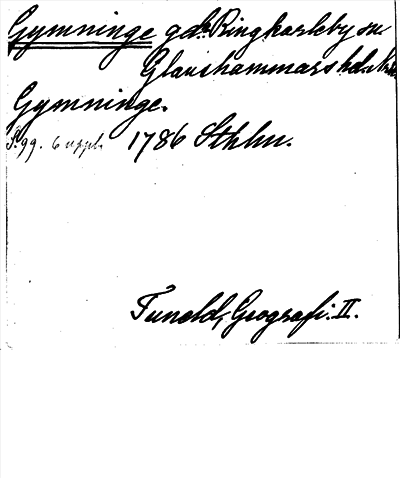 Gymninge gd. Ringkarleby sn
Glanshammars hd.
Gymninge.
S. 99. 6 uppl. 1786 Sthlm.
Tuneld, Geografi. II.